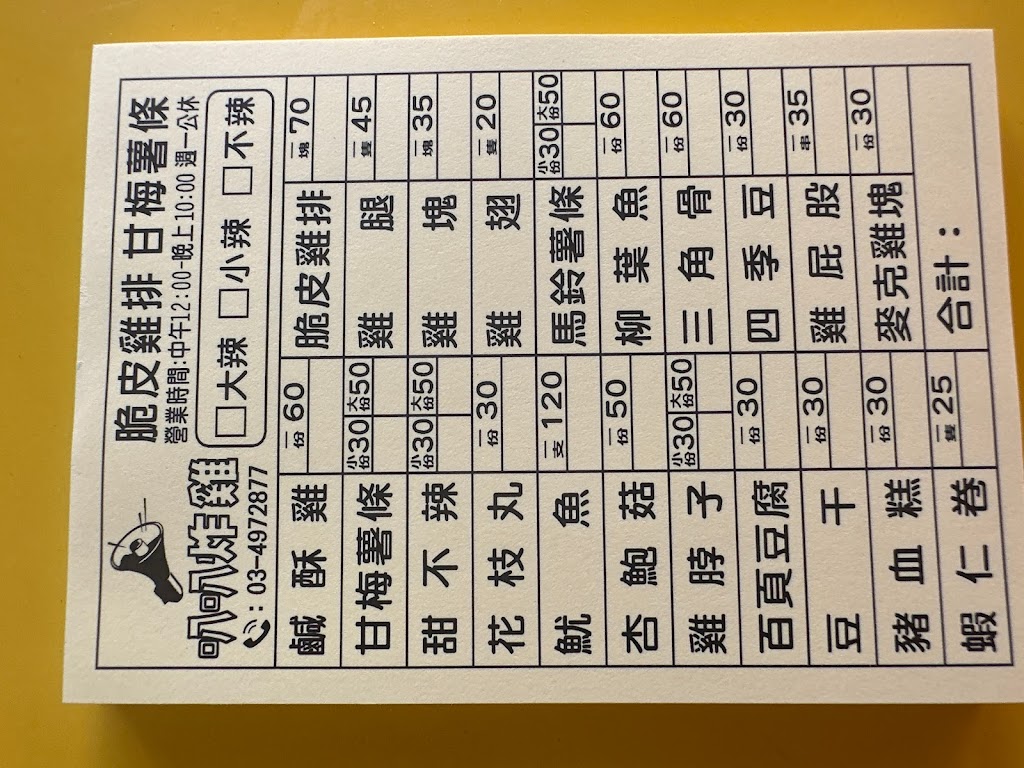 叭叭炸雞
: 03-4972877
脆皮雞排 甘梅薯條
營業時間:中午12:00-晚上10:00 週一公休
□大辣 □小辣 □不辣
鹹酥雞 一份60 脆皮雞排 一塊70
甘梅薯條 小份30 大份50 雞腿 一隻45
甜不辣 小份30 大份50 雞塊 一塊35
花枝丸 一份30 雞翅 一隻20
魷魚 一支120 馬鈴薯條 小份30 大份50
杏鮑菇 一份50 柳葉魚 一份60
雞脖子 小份30 大份50 三角骨 一份60
百頁豆腐 一份30 四季豆 一份30
豆干 一份30 雞屁股 一串35
豬血糕 一份30 麥克雞塊 一份30
蝦仁卷 一隻25 合計：